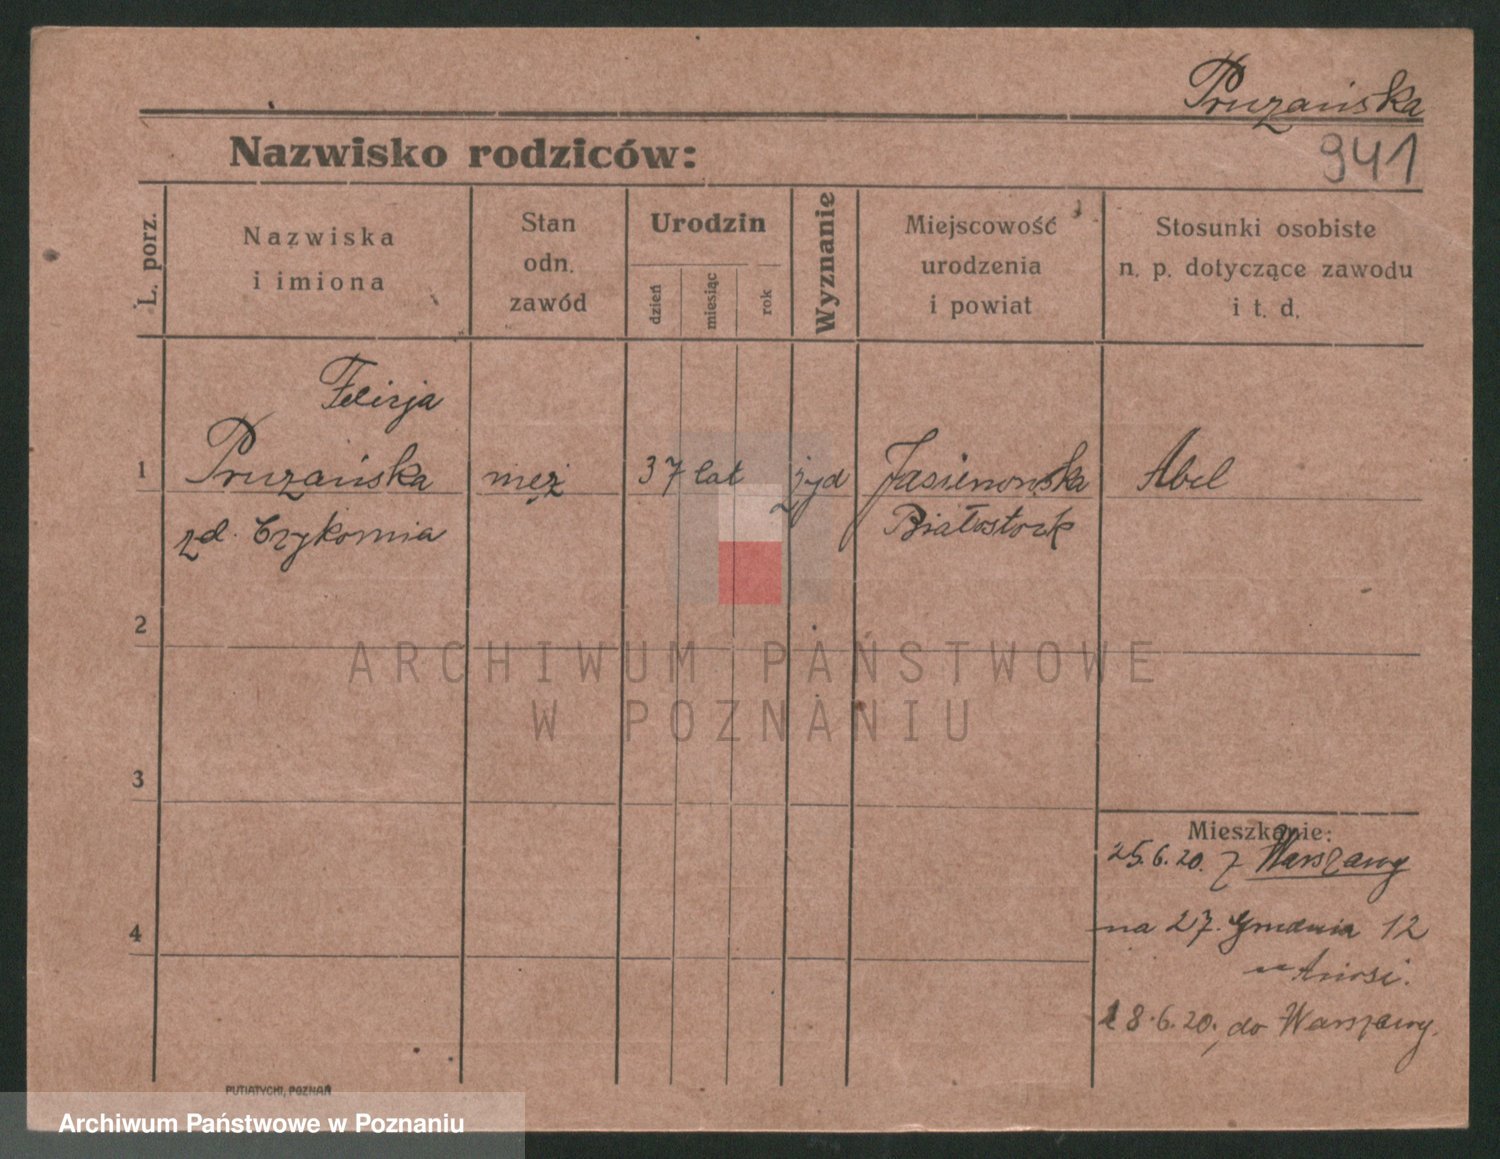 Pruzańska
941
Nazwisko rodziców:
L. porz.
Nazwiska
i imiona
Stan
odn.
zawód
Urodzin
dzień
miesiąc
rok
Wyznanie
Miejscowość
urodzenia
i powiat
Stosunki osobiste
n. p. dotyczące zawodu
i t. d.
Felicja
1 Pruzańska męż 37 lat żyd Jasienowska Abel
zd. Białostock
2
ARCHIWUM PAŃSTWOWE
W POZNANIU
3
Mieszkanie:
25.6.20. z Warszawy
na 27. Grudnia 12
4
28.6.20, do Warszawy.
PUTIATYCKI, POZNAŃ
Archiwum Państwowe w Poznaniu